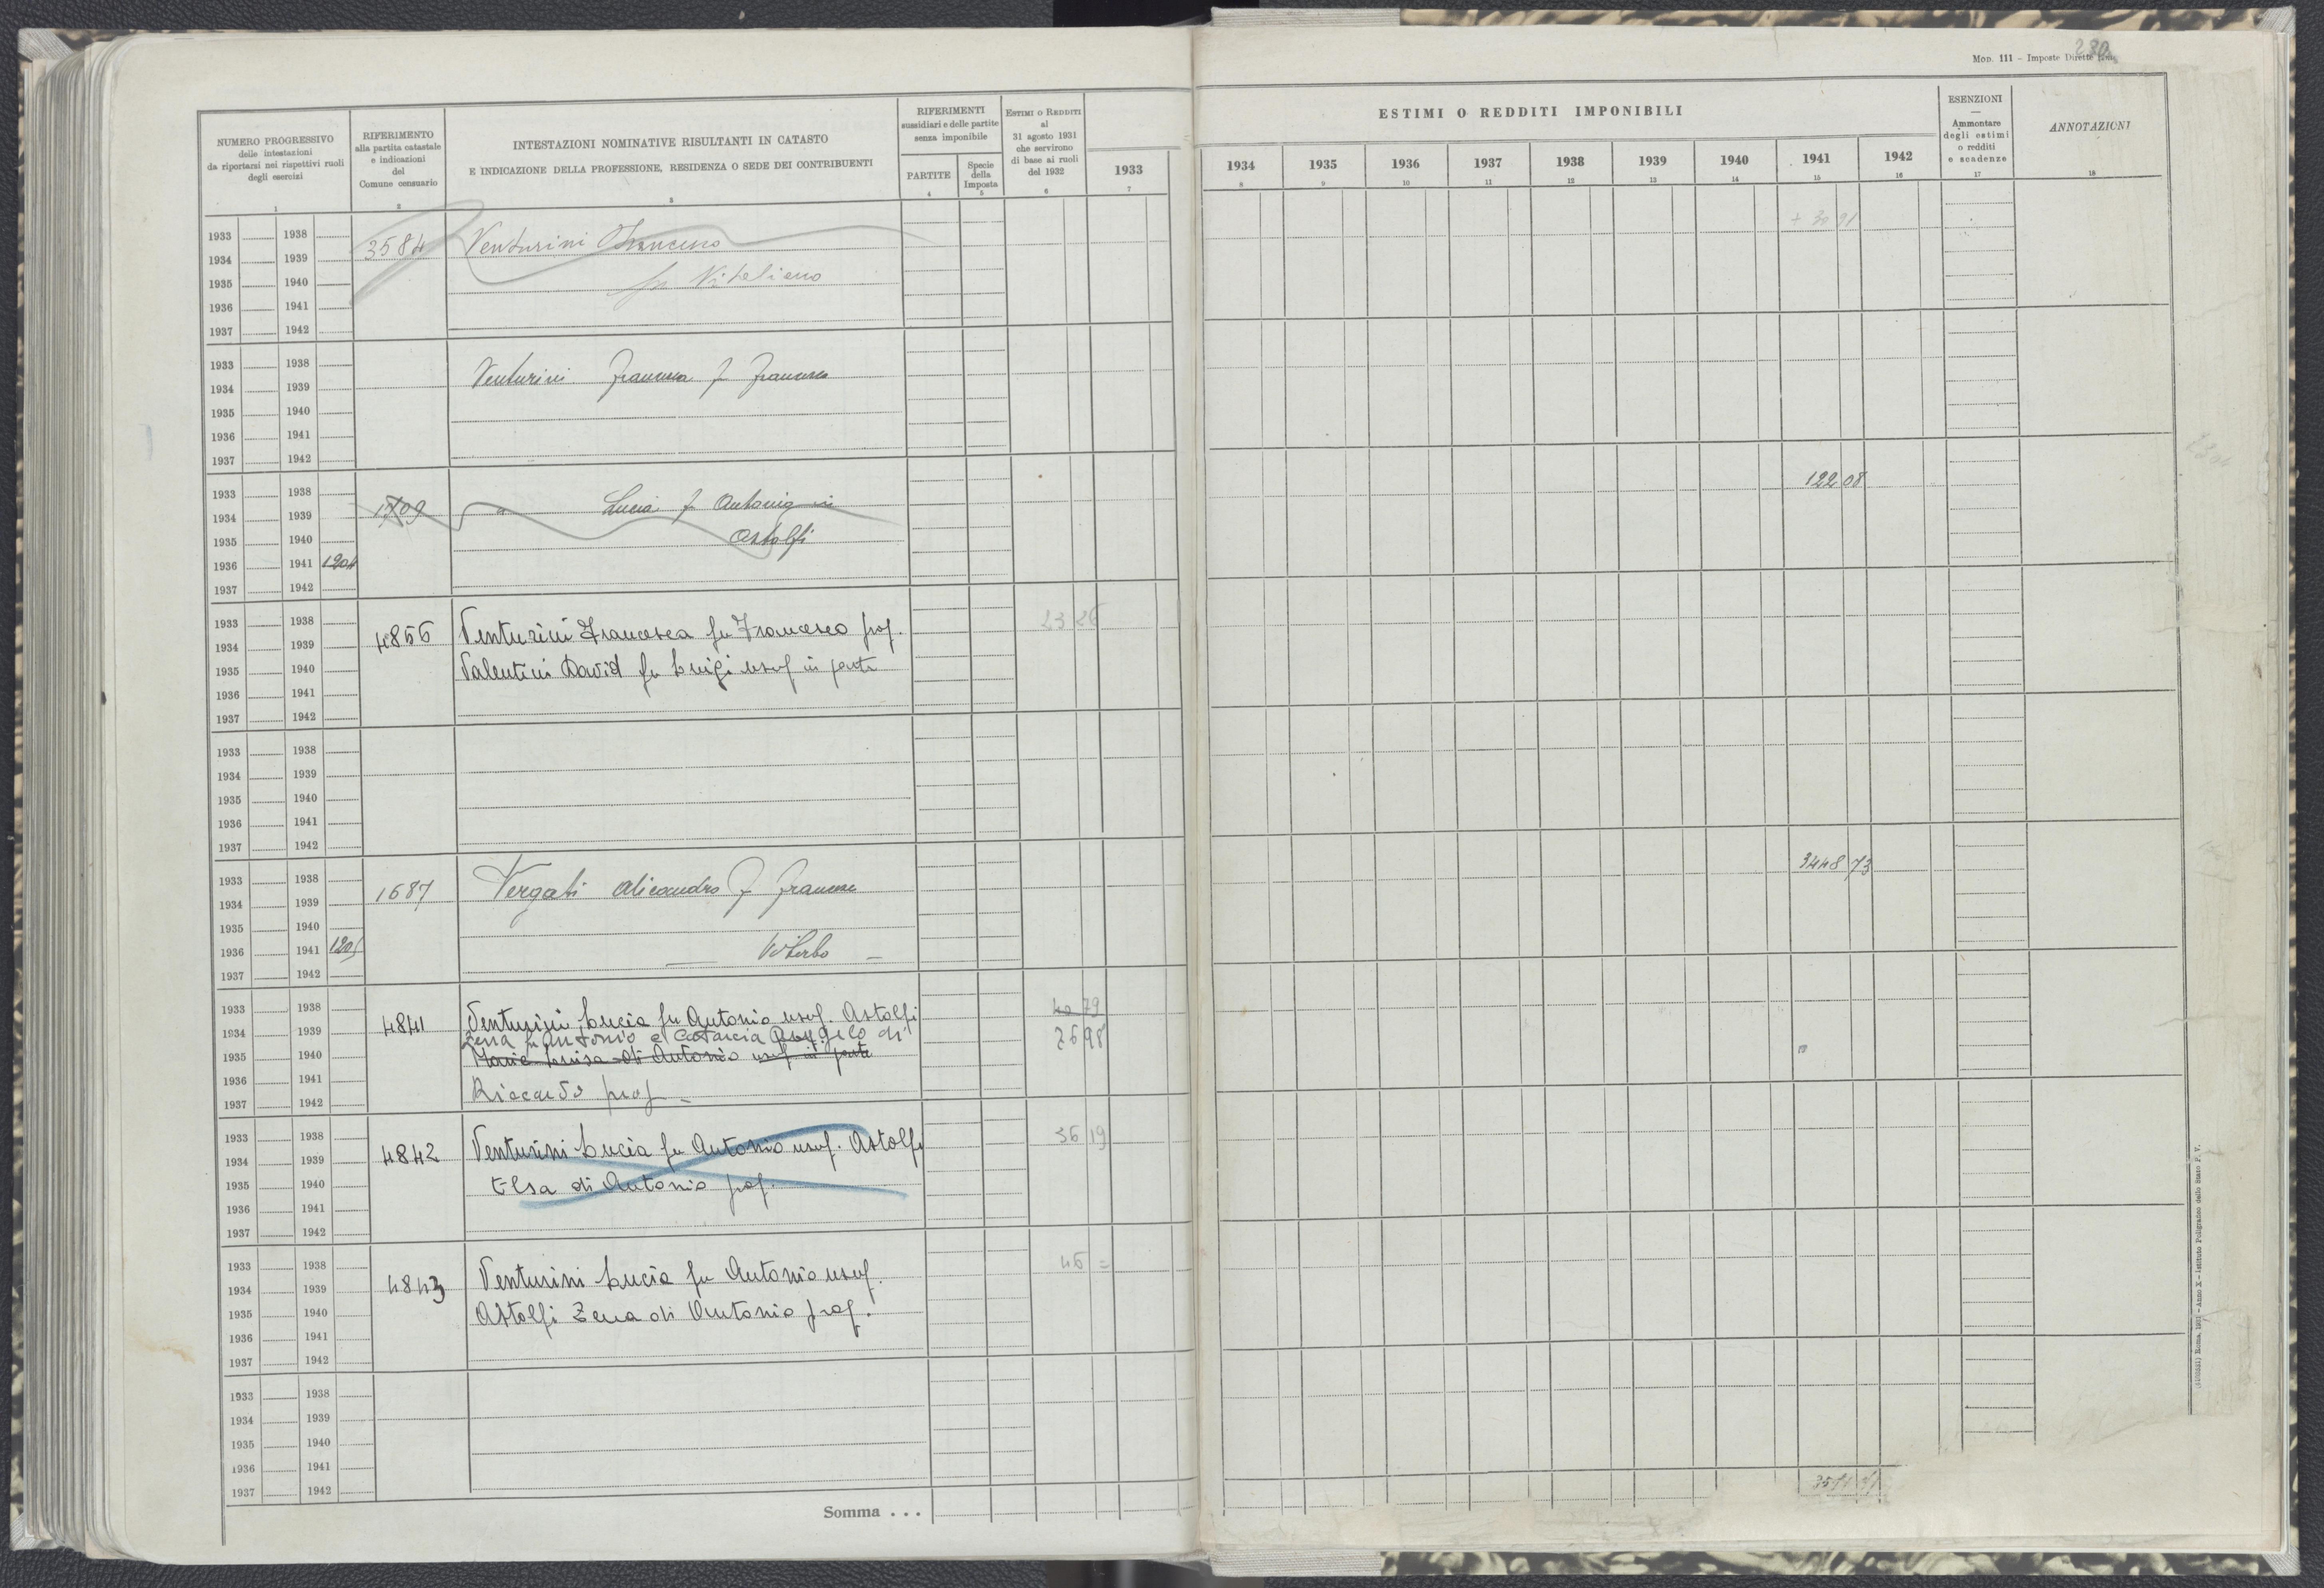 280
Mod. 111 - Imposte Dirette
NUMERO PROGRESSIVO
delle intestazioni
da riportarsi nei rispettivi ruoli
degli esercizi
1
RIFERIMENTO
alla partita catastale
e indicazioni
del
Comune censuario
2
INTESTAZIONI NOMINATIVE RISULTANTI IN CATASTO
E INDICAZIONE DELLA PROFESSIONE, RESIDENZA O SEDE DEI CONTRIBUENTI
3
RIFERIMENTI
sussidiari e delle partite
senza imponibile
PARTITE
4
Specie
della
Imposta
5
Estimi o Redditi
al
31 agosto 1931
che servirono
di base ai ruoli
del 1932
6
1933
7
ESTIMI O REDDITI IMPONIBILI
1934 1935 1936 1937 1938 1939 1940 1941 1942
8 9 10 11 12 13 14 15 16
ESENZIONI
—
Ammontare
degli estimi
o redditi
e scadenze
17
ANNOTAZIONI
18
1933 1938
1934 1939 3584 Venturini Francesco
1935 1940 fu Vitaliano
1936 1941
1937 1942
1933 1938
1934 1939 Venturini Francesca f Francesco
1935 1940
1936 1941
1937 1942
1933 1938 122 08
1934 1939 1709 " Lucia f Antonio in
1935 1940 Astolfi
1936 1941 1204
1937 1942
1933 1938 4856 Venturini Francesca fu Francesco prof. 23 26
1934 1939
1935 1940 Valentini David fu Luigi usuf in parte
1936 1941
1937 1942
1933 1938
1934 1939
1935 1940
1936 1941
1937 1942
1933 1938 3448 73
1934 1939 1687 Vergati Alicandro f Francesco
1935 1940
1936 1941 1205 Viterbo
1937 1942
1933 1938 40 79
1934 1939 4841 Venturini Lucia fu Antonio usuf. Astolfi
Zena fu Antonio e Catarcia Angelo di 26 98
1935 1940 Maria Luisa di Antonio usuf in parte
1936 1941
1937 1942 Riccardo prof
1933 1938 36 19
1934 1939 4842 Venturini Lucia fu Antonio usuf. Astolfi
1935 1940 Elsa di Antonio prof.
1936 1941
1937 1942
1933 1938 46 =
1934 1939 4843 Venturini Lucia fu Antonio usuf.
1935 1940 Astolfi Zena di Antonio prof.
1936 1941
1937 1942
1933 1938
1934 1939
1935 1940
1936 1941
1937 1942
Somma . . .
Roma, 1931 - Anno X - Istituto Poligrafico dello Stato P. V.